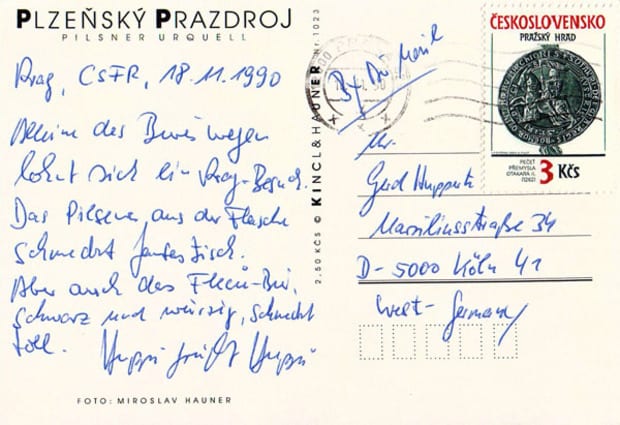 PLZEŇSKÝ PRAZDROJ
PILSNER URQUELL
Prag, CSFR, 18.11.1990
Alleine des Bieres wegen
lohnt sich ein Prag-Besuch.
Das Pilsener aus der Flasche
schmeckt fantastisch.
Aber auch das Flekū-Bier,
schwarz und würzig, schmeckt
toll. Huppi grüßt Huppi
FOTO: MIROSLAV HAUNER
2,50 KČS © KINCL & HAUNER Nr. 1023
By Air Mail
ČESKOSLOVENSKO
PRAŽSKÝ HRAD
PEČEŤ
PŘEMYSLA
OTAKARA II.
(1262)
3 Kčs
Mr.
Gerd Huppertz
Marsiliusstraße 34
D-5000 Köln 41
West-Germany